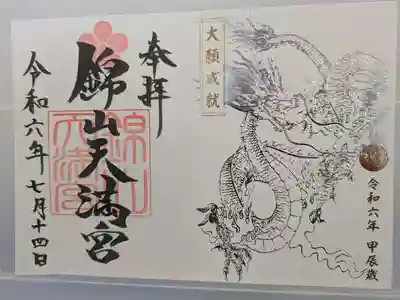 奉拝
錦山天満宮
令和六年七月十四日
大願成就
令和六年 甲辰歳